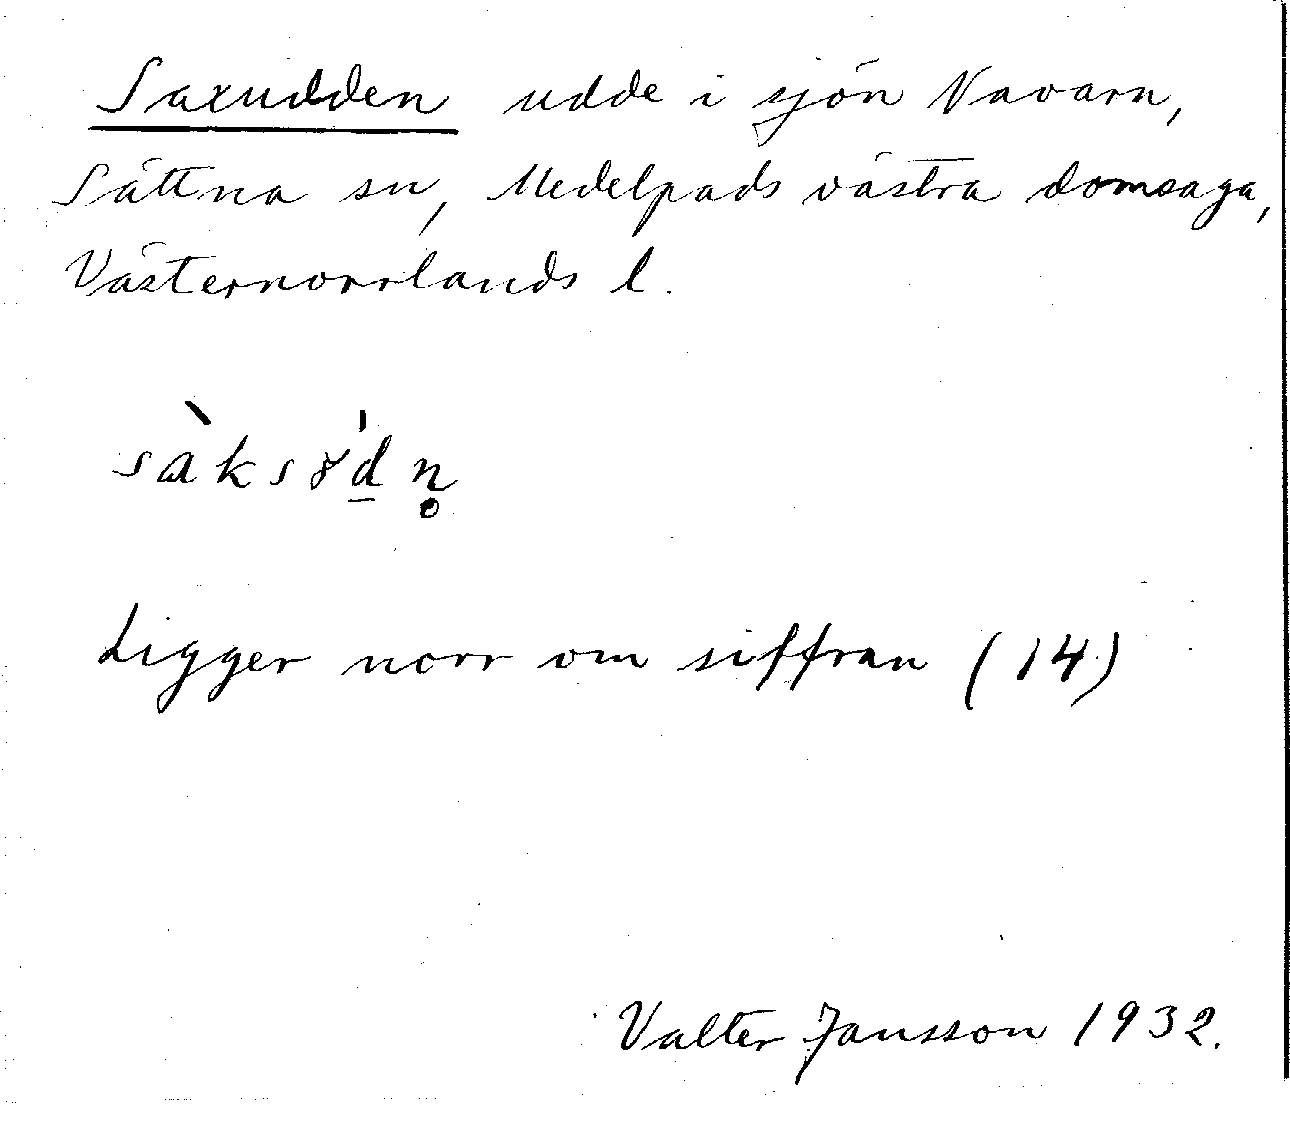 Saxudden udde i sjön Vavarn,
Sättna sn, Medelpads västra domsaga,
Västernorrlands l.
sàksɤ́d̲n̥
Ligger norr om siffran (14)
Valter Jansson 1932.